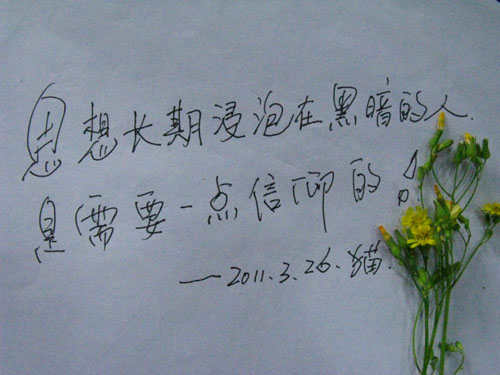 思想长期浸泡在黑暗的人.
是需要一点信仰的!
—2011.3.26.猫.